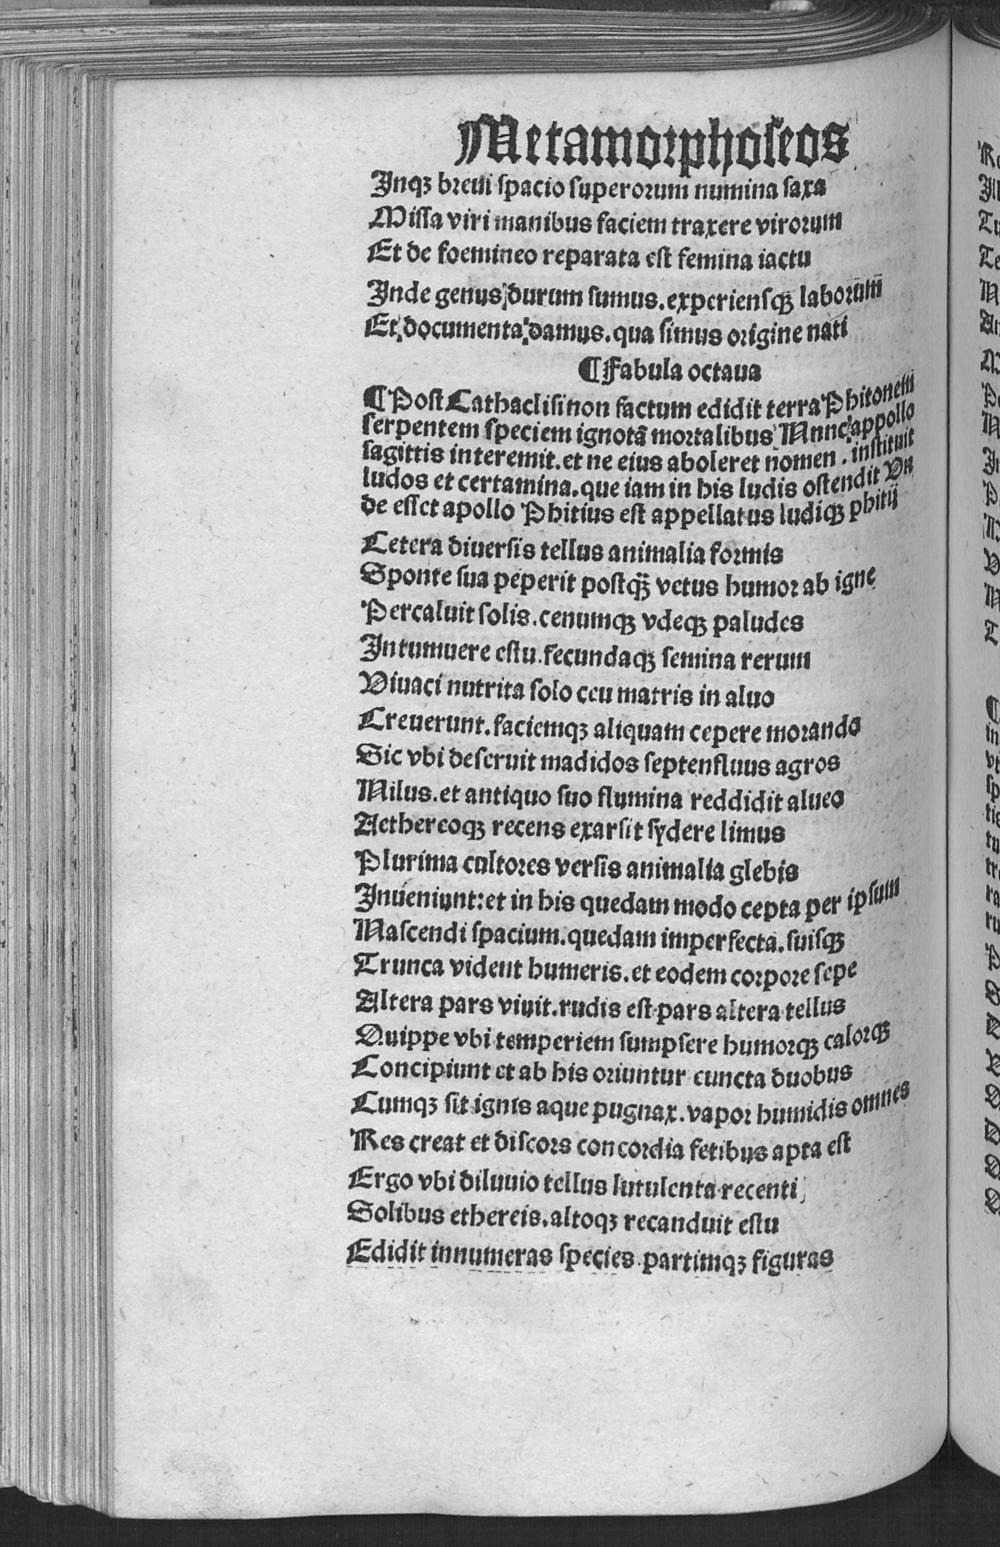 Metamorphoseos
Inqꝫ breui spacio superorum numina saxa
Missa viri manibus faciem traxere virorum
Et de foemineo reparata est femina iactu
Inde genus durum sumus.experiensqꝫ laborum̄
Et documenta damus.qua simus origine nati
¶Fabula octaua
¶Post Cathaclisinon factum edidit terra Phitonem
serpentem speciem ignotā mortalibus Nunc appollo
sagittis interemit.et ne eius aboleret nomen.instituit
ludos et certamina.que iam in his ludis ostendit Vn
de esset apollo Phitius est appellatus ludiqꝫ phitij
Cetera diuersis tellus animalia formis
Sponte sua peperit postqꝫ̄ vetus humor ab igne
Percaluit solis.cenumqꝫ vdeqꝫ paludes
Intumuere estu.fecundaqꝫ semina rerum
Viuaci nutrita solo ceu matris in aluo
Creuerunt.faciemqꝫ aliquam cepere morando
Sic vbi deseruit madidos septenfluus agros
Nilus.et antiquo suo flumina reddidit alueo
Aethereoqꝫ recens exarsit sydere limus
Plurima cultores versis animalia glebis
Inueniunt:et in his quedam modo cepta per ipsum
Nascendi spacium.quedam imperfecta.suisqꝫ
Trunca vident humeris.et eodem corpore sepe
Altera pars viuit.rudis est pars altera tellus
Quippe vbi temperiem sumpsere humorqꝫ calorqꝫ
Concipiunt et ab his oriuntur cuncta duobus
Cumqꝫ sit ignis aque pugnax.vapor humidis omnes
Res creat et discors concordia fetibus apta est
Ergo vbi diluuio tellus lutulenta recenti
Solibus ethereis.altoqꝫ recanduit estu
Edidit innumeras species.partimqꝫ figuras